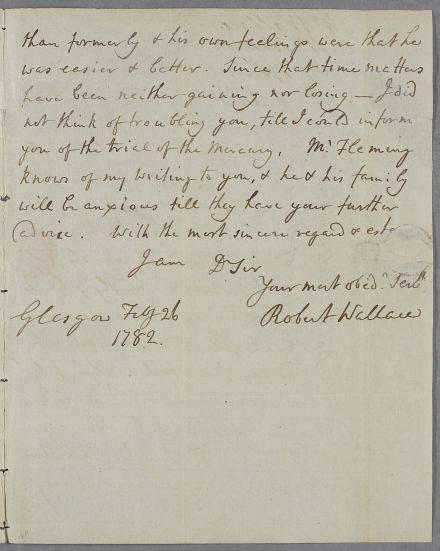 than formerly & his own feelings were that he
was easier & better. Since that time matters
have been neither gaining nor losing — I did
not think of troubling you, till I could inform
you of the trial of the Mercury. Mr Fleming
knows of my writing to you, & he & his family
will be anxious till they have your further
advice. With the most sincere regard & este
I am Dr Sir
Your most obedt Servt
Glasgow Feby 26
Robert Wallace
1782.